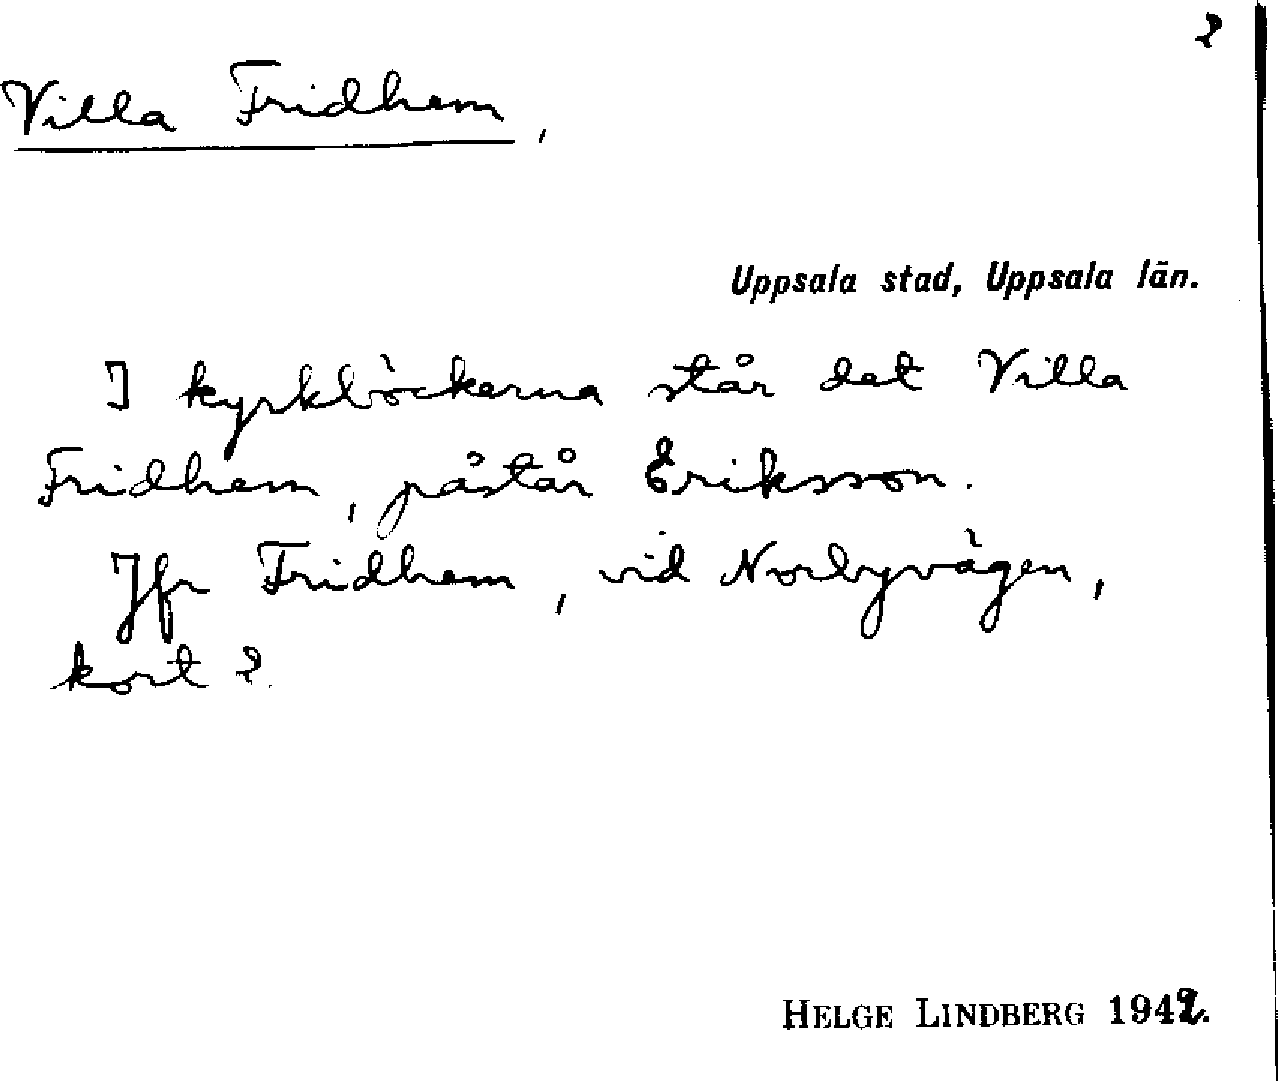 2
Villa Fridhem,
Uppsala stad, Uppsala län.
I kyrkböckerna står det Villa
Fridhem, påstår Eriksson.
Jfr Fridhem, vid Norbyvägen,
kort 2.
HELGE LINDBERG 1942.